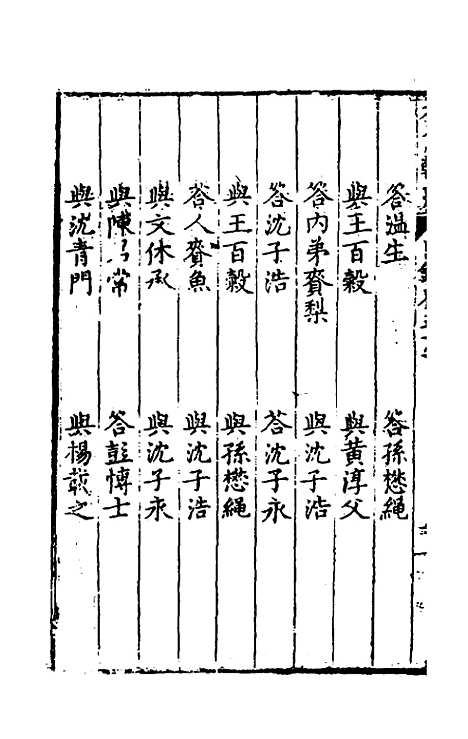 答溫生　答孫懋繩
與王百穀　與黃淳父
答内弟賚梨　與沈子浩
答沈子浩　荅沈子永
與王百穀　與孫懋繩
答人賚魚　與沈子浩
與文休承　與沈子永
與陳　常　答彭博士
與沈青門　與楊載之